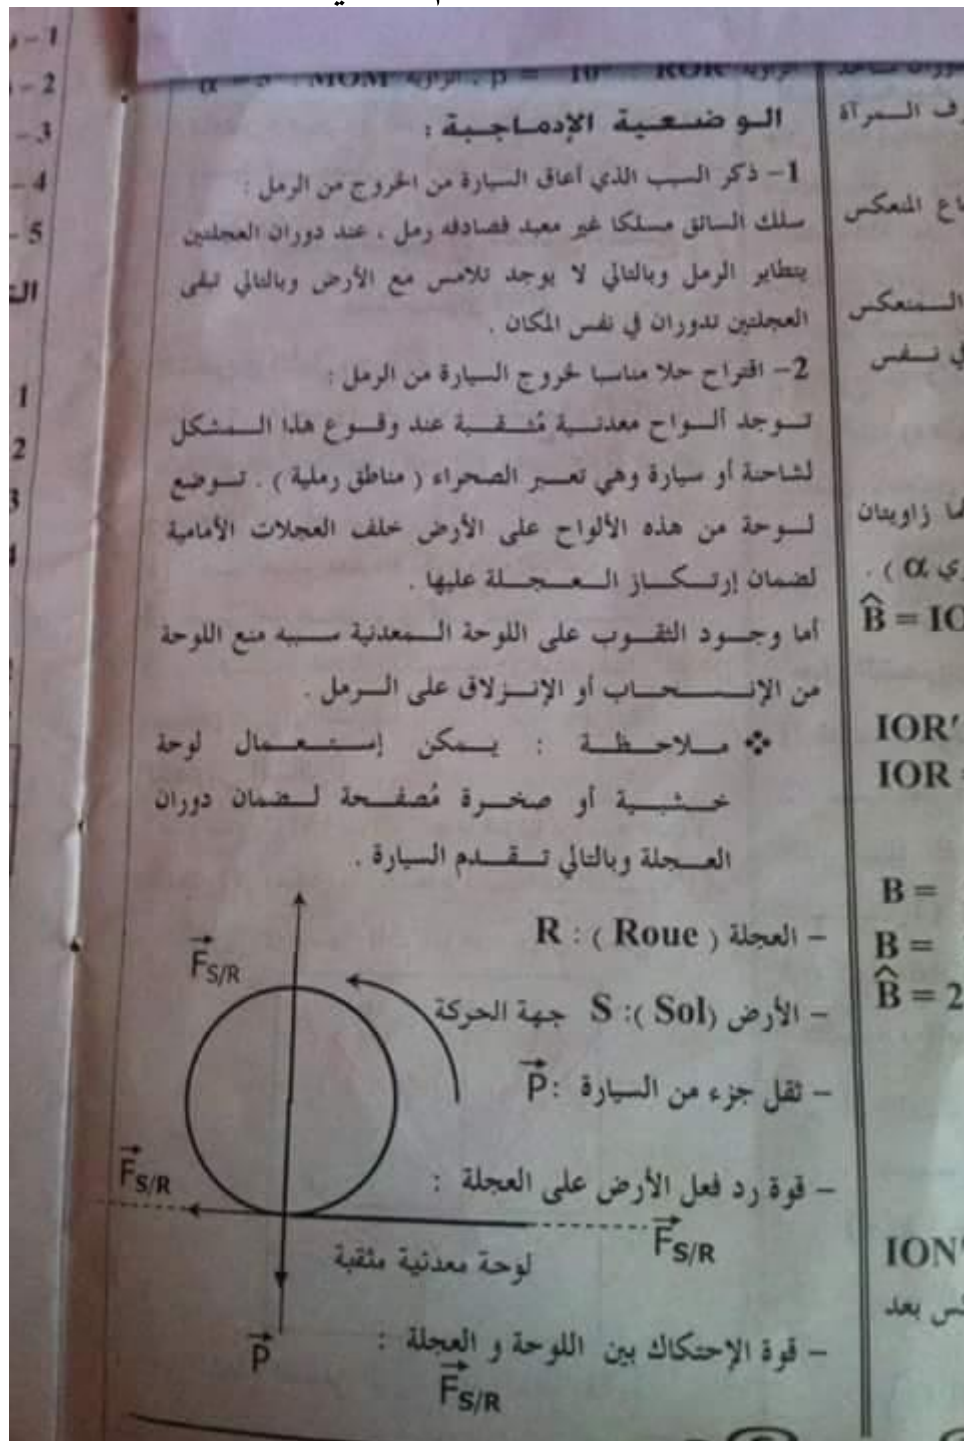 الزاوية ROR' : β = 10° ، الزاوية MOM' : α = 5°
الوضعية الإدماجية :
1- ذكر السبب الذي أعاق السيارة من الخروج من الرمل :
سلك السائق مسلكا غير معبد فصادفه رمل ، عند دوران العجلتين
يتطاير الرمل وبالتالي لا يوجد تلامس مع الأرض وبالتالي تبقى
العجلتين تدوران في نفس المكان .
2- اقتراح حلا مناسبا لخروج السيارة من الرمل :
توجد ألواح معدنية مُثقبة عند وقوع هذا المشكل
لشاحنة أو سيارة وهي تعبر الصحراء ( مناطق رملية ) . توضع
لوحة من هذه الألواح على الأرض خلف العجلات الأمامية
لضمان إرتكاز العجلة عليها .
أما وجود الثقوب على اللوحة المعدنية سببه منع اللوحة
من الإنسحاب أو الإنزلاق على الرمل .
❖ ملاحظة : يمكن إستعمال لوحة
خشبية أو صخرة مُصفحة لضمان دوران
العجلة وبالتالي تقدم السيارة .
- العجلة ( Roue ) : R
F S/R
- الأرض (Sol ): S جهة الحركة
- ثقل جزء من السيارة : P
- قوة رد فعل الأرض على العجلة :
F S/R
F S/R
لوحة معدنية مثقبة
- قوة الإحتكاك بين اللوحة و العجلة :
P
F S/R
1 -
2 -
3 -
4 -
5 -
1
2
3
المرآة
المنعكس
المنعكس
في نفس
زاويتان
α ) .
B̂ = IO
IOR'
IOR =
B =
B =
B̂ = 2
ION'
بعد